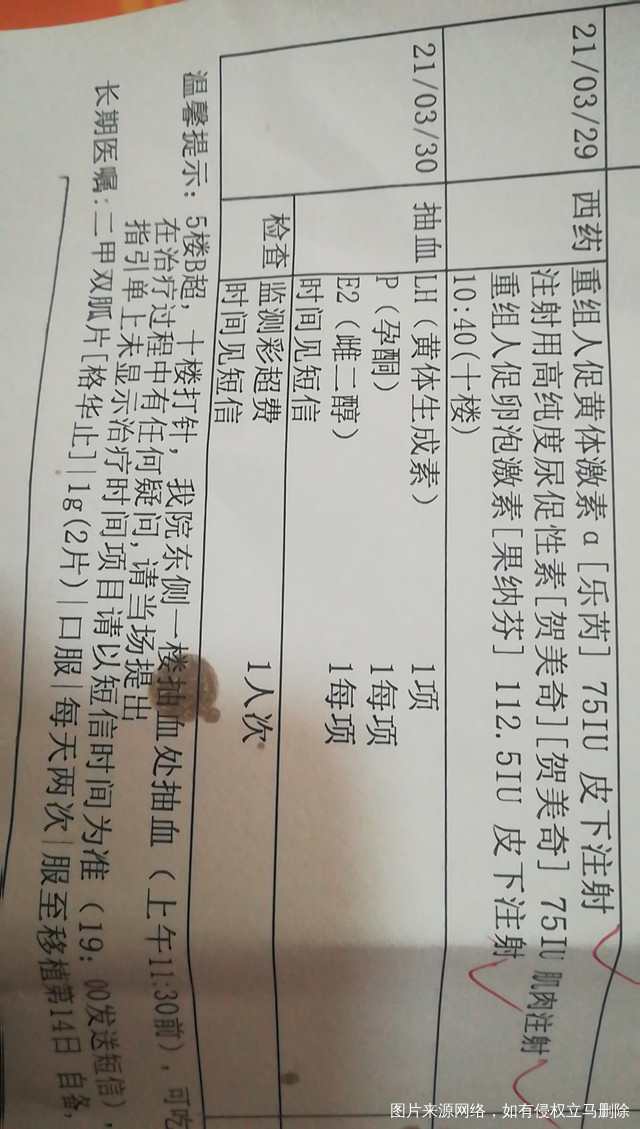 21/03/29 西药 重组人促黄体激素α[乐芮] 75IU 皮下注射
注射用高纯度尿促性素[贺美奇][贺美奇] 75IU 肌肉注射
重组人促卵泡激素[果纳芬] 112.5IU 皮下注射
10:40(十楼)
21/03/30 抽血 LH(黄体生成素) 1项
P(孕酮) 1每项
E2(雌二醇) 1每项
时间见短信
检查 监测彩超费 1人次
时间见短信
温馨提示: 5楼B超, 十楼打针, 我院东侧一楼抽血处抽血(上午11:30前), 可吃
在治疗过程中有任何疑问, 请当场提出
指引单上未显示治疗时间项目请以短信时间为准(19:00发送短信),
长期医嘱:二甲双胍片[格华止]|1g(2片)|口服|每天两次|服至移植第14日 自备,
图片来源网络，如有侵权立马删除